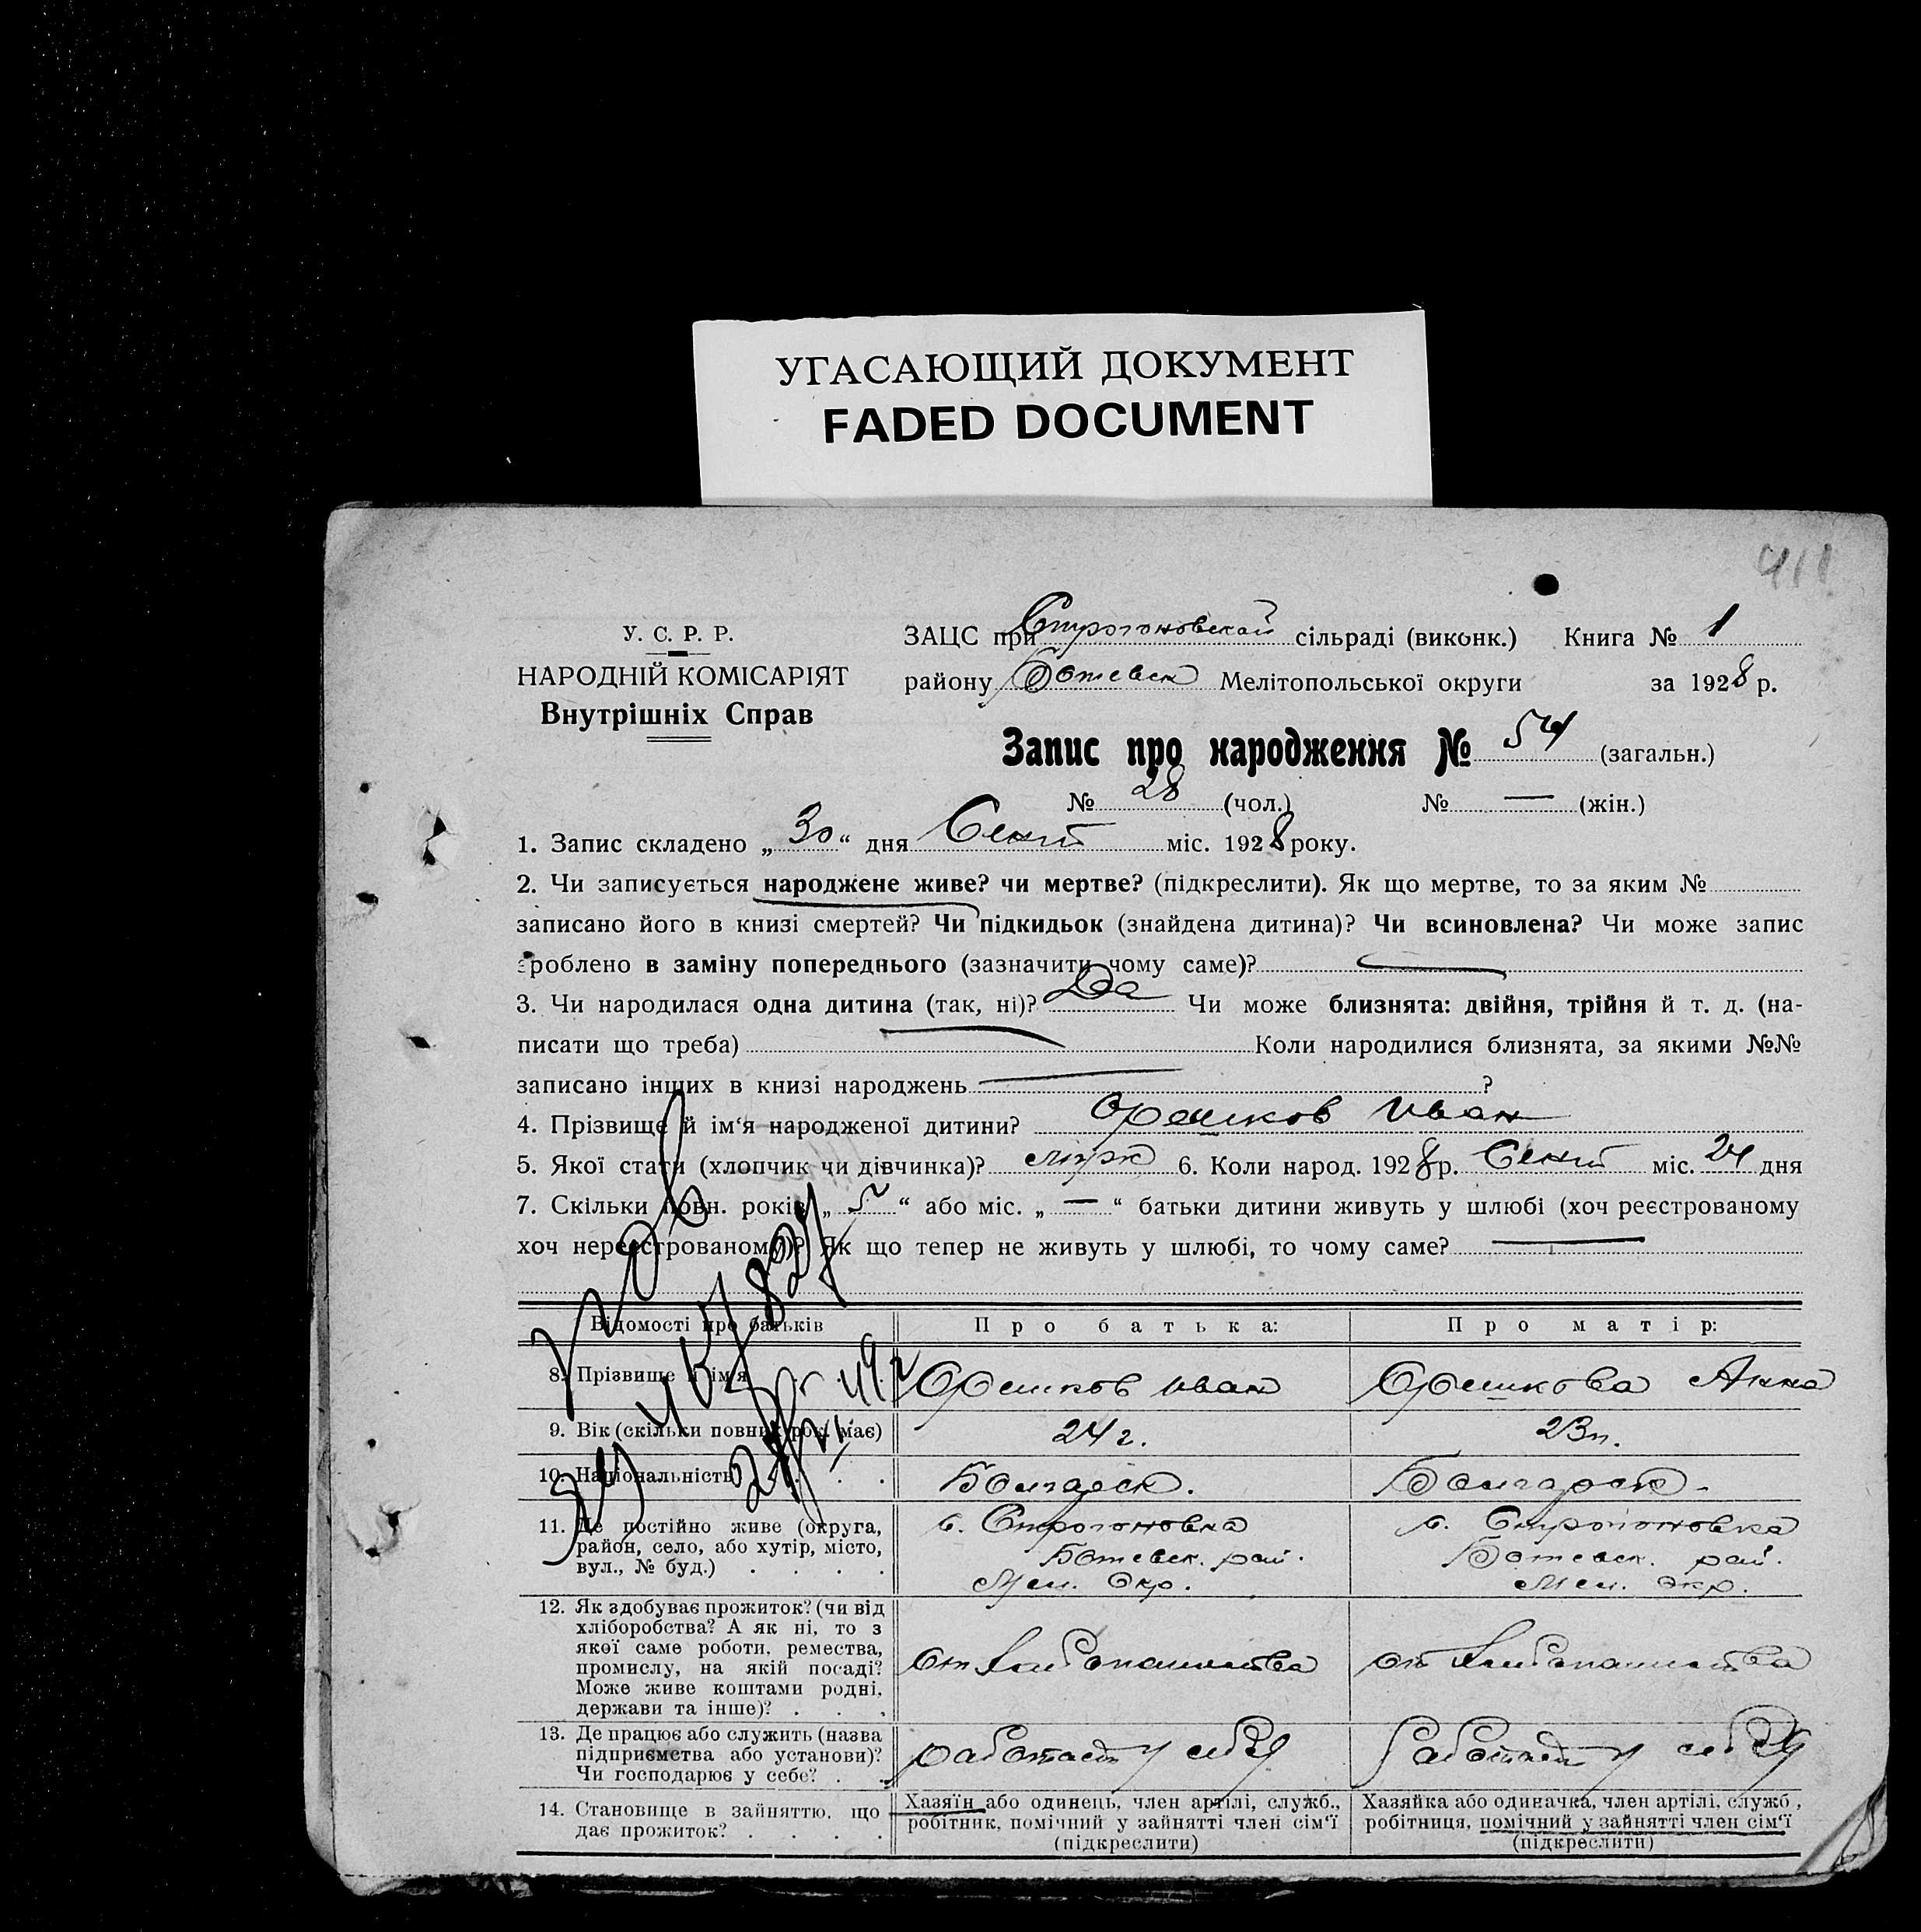 УГАСАЮЩИЙ ДОКУМЕНТ
FADED DOCUMENT
411
У. С. Р. Р.
НАРОДНІЙ КОМІСАРІЯТ
Внутрішніх Справ
ЗАЦС при Строгоновской сільраді (виконк.) Книга № 1
району Ботевск Мелітопольської округи за 1928 р.
Запис про народження № 54 (загальн.)
№ 28 (чол.) № — (жін.)
1. Запис складено „ 30 “ дня Сент міс. 1928 року.
2. Чи записується народжене живе? чи мертве? (підкреслити). Як що мертве, то за яким №
записано його в книзі смертей? Чи підкидьок (знайдена дитина)? Чи всиновлена? Чи може запис
зроблено в заміну попереднього (зазначити чому саме)? —
3. Чи народилася одна дитина (так, ні)? Да Чи може близнята: двійня, трійня й т. д. (на-
писати що треба) — Коли народилися близнята, за якими №№
записано інших в книзі народжень — ?
4. Прізвище й ім‘я народженої дитини? Орешков Иван
5. Якої стати (хлопчик чи дівчинка)? мужк 6. Коли народ. 1928 р. Сент міс. 24 дня
7. Скільки повн. років „ 5 “ або міс. „ — “ батьки дитини живуть у шлюбі (хоч реєстрованому
хоч нереєстрованому)? Як що тепер не живуть у шлюбі, то чому саме? —
Відомості про батьків Про батька: Про матір:
8. Прізвище й ім‘я . . . Орешков Иван Орешкова Анна
9. Вік (скільки повних рок. має) 24 г. 23 г.
10. Національність . . . Болгарск. Болгарск.
11. Де постійно живе (округа,
район, село, або хутір, місто,
вул., № буд.) . . . .
с. Строгоновка
Ботевск. рай.
Мел. Окр.
с. Строгоновка
Ботевск. рай.
Мел. Окр.
12. Як здобуває прожиток? (чи від
хліборобства? А як ні, то з
якої саме роботи, ремества,
промислу, на якій посаді?
Може живе коштами родні,
держави та інше)? . . .
от хлебопашества
от хлебопашества
13. Де працює або служить (назва
підприємства або установи)?
Чи господарює у себе? . .
работает у себя
работает у себя
14. Становище в зайняттю, що
дає прожиток? . . . .
Хазяїн або одинець, член артілі, служб.,
робітник, помічний у зайнятті член сім‘ї
(підкреслити)
Хазяйка або одиначка, член артілі, служб.,
робітниця, помічний у зайнятті член сім‘ї
(підкреслити)